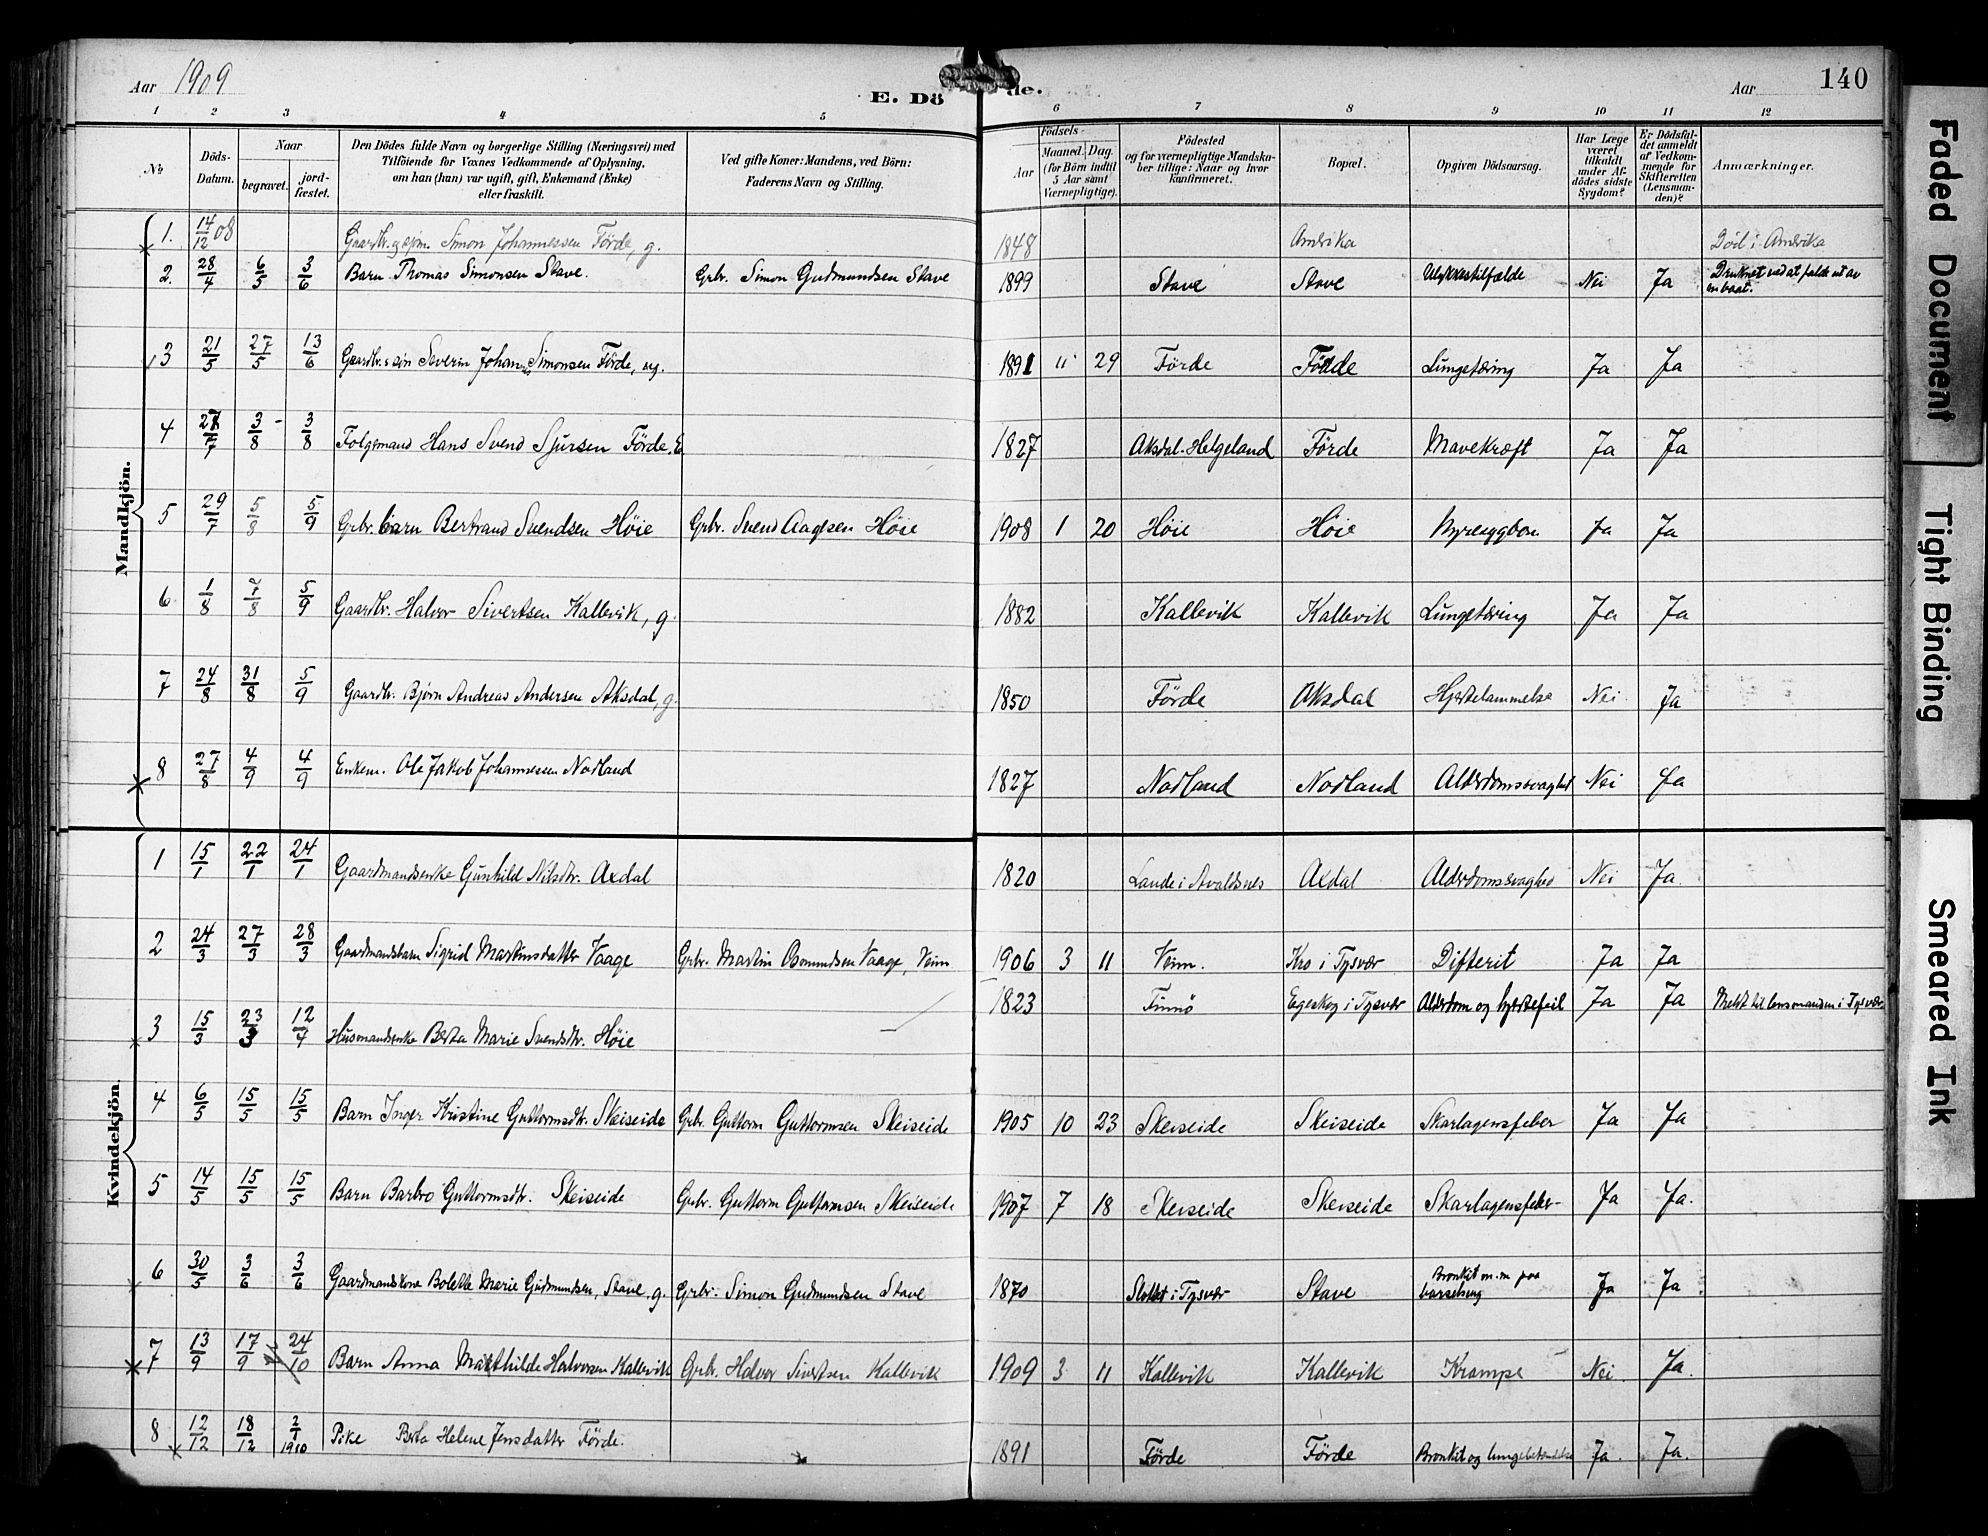 Aar 1909
E. Dö
de.
Aar
140
1 2 3 4 5 6 7 8 9 10 11 12
No
Döds-Datum.
Naar
begravet.
jord-fæstet.
Den Dödes fulde Navn og borgerlige Stilling (Næringsvei) med
Tilföiende for Voxnes Vedkommende af Oplysning,
om han (hun) var ugift, gift, Enkemand (Enke)
eller fraskilt.
Ved gifte Koner: Mandens, ved Börn:
Faderens Navn og Stilling.
Födsels-
Aar
Maaned. Dag.
(for Börn indtil
5 Aar samt
Værnepligtige).
Födested
og for værnepligtige Mandska-
ber tillige: Naar og hvor
konfirmeret.
Bopæl.
Opgiven Dödsaarsag.
Har Læge
været
tilkaldt
under Af-
dödes sidste
Sygdom?
Er Dödsfal-
det anmeldt
af Vedkom-
mende for
Skifteretten
(Lensman-
den)?
Anmærkninger.
Mandkjön.
1. 14/12 08 Gaardbr. og sjøm. Simon Johannessen Förde, g. 1848 Amerika Död i Amerika
2. 28/4 6/5 3/6 Barn Thomas Simonsen Stave. Grbr. Simon Gudmundsen Stave 1899 Stave Stave Ulykkestilfælde Nei Ja Druknet ved at falde ut av
en baat.
3 21/5 27/5 13/6 Gaardbr.s søn Severin Johannes Simonsen Förde, ug. 1891 11 29 Förde Förde Lungetæring Ja Ja
4 27/7 3/8 3/8 Folgemand Hans Svend Sjursen Förde, E 1827 Aksdal-Helgeland Förde Mavekræft Ja Ja
5 29/7 5/8 5/9 Grbr. barn Bertrand Svendsen Höie Grbr. Svend Aagesen Höie 1908 1 20 Höie Höie Ja Ja
6 1/8 7/8 5/9 Gaardbr. Halvor Sivertsen Kallevik, g. 1882 Kallevik Kallevik Lungetæring Ja Ja
7 24/8 31/8 5/9 Gaardbr. Bjørn Andreas Andersen Aksdal, g. 1850 Förde Aksdal Hjertelammelse Nei Ja
8 27/8 4/9 4/9 Enkem. Ole Jakob Johannessen Nodland 1827 Nodland Nodland Alderdomssvaghet Nei Ja
Kvindekjön.
1 15/1 22/1 24/1 Gaardmandsenke Gunhild Nilsdtr. Axdal 1820 Lande i Avaldsnes Axdal Alderdomssvaghed Nei Ja.
2 24/3 27/3 28/3 Gaardmandsbarn Sigrid Martinsdatter Vaage Grbr. Martin Osmundsen Vaage, Veim 1906 3 11 Veim. Kro i Tysvær Difterit Ja Ja
3 15/3 23/3 12/4 Husmandsenke Berta Marie Svendsdtr. Höie 1823 Finnö Egeskog i Tysvær Alderdom og hjertefeil Ja Ja Meldt til lensmanden i Tysvær
4 6/5 15/5 15/5 Barn Inger Kristine Guttormsdtr. Skeiseide Grbr. Guttorm Guttormsen Skeiseide 1905 10 23 Skeiseide Skeiseide Skarlagensfeber Ja Ja
5 14/5 15/5 15/5 Barn Barbro Guttormsdtr. Skeiseide Grbr. Guttorm Guttormsen Skeiseide 1907 7 18 Skeiseide Skeiseide Skarlagensfeber Ja Ja.
6 30/5 3/6 3/6 Gaardmandskone Bolette Marie Gudmundsen, Stave, g. Grbr. Simon Gudmundsen Stave 1870 i Tysvær Stave Bronkit m.m paa
barselseng Ja Ja.
7 13/9 17/9 24/10 Barn Anna Mathilde Halvorsen Kallevik Grbr. Halvor Sivertsen Kallevik 1909 3 11 Kallevik Kallevik Krampe Nei. Ja.
8 12/12 18/12 2/1 1910 Pike Berta Helene Jensdatter Förde. 1891 Förde Förde Bronkit og lungebetændelse Ja. Ja.
Faded Document
Tight Binding
Smeared Ink